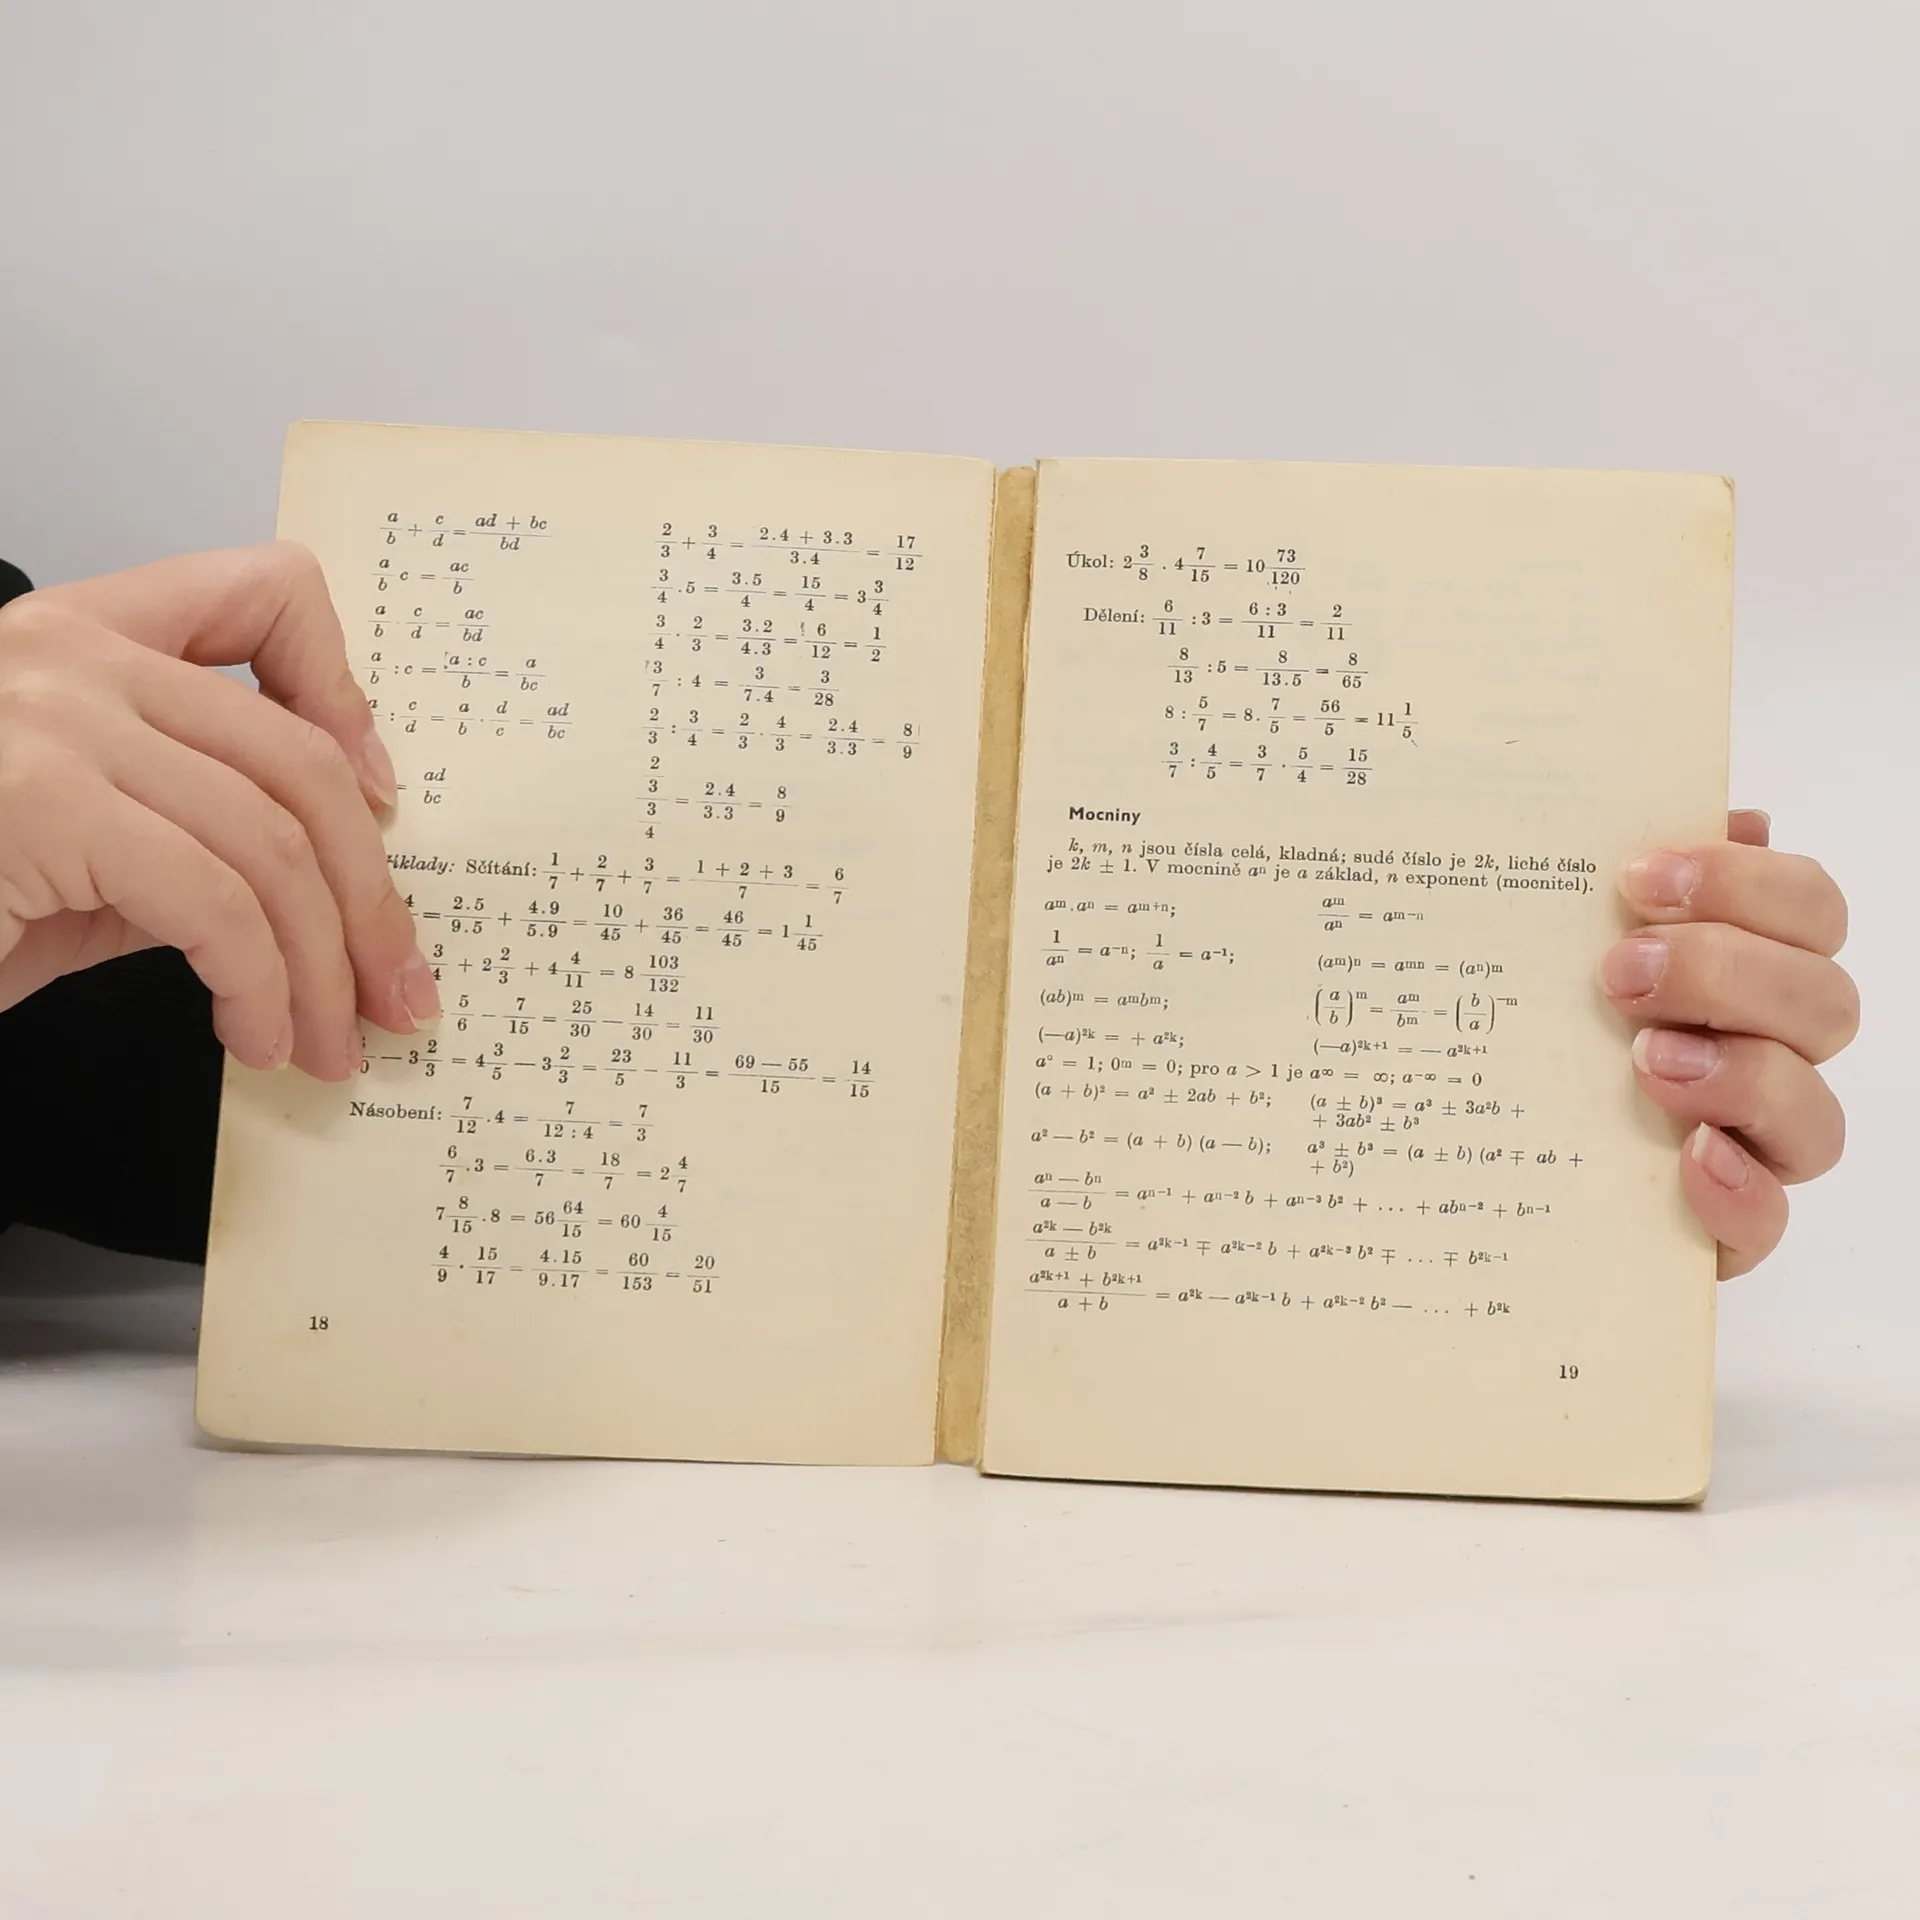 a/b + c/d = ad + bc/bd 2/3 + 3/4 = 2.4 + 3.3/3.4 = 17/12
a/b c = ac/b 3/4 . 5 = 3.5/4 = 15/4 = 3 3/4
a/b . c/d = ac/bd 3/4 . 2/3 = 3.2/4.3 = 6/12 = 1/2
a/b : c = a : c/b = a/bc 3/7 : 4 = 3/7.4 = 3/28
a/ : c/d = a/b . d/c = ad/bc 2/3 : 3/4 = 2/3 . 4/3 = 2.4/3.3 = 8/9
= ad/bc 2/3/3/4 = 2.4/3.3 = 8/9
íklady: Sčítání: 1/7 + 2/7 + 3/7 = 1 + 2 + 3/7 = 6/7
4 = 2.5/9.5 + 4.9/5.9 = 10/45 + 36/45 = 46/45 = 1 1/45
3/4 + 2 2/3 + 4 4/11 = 8 103/132
: 5/6 − 7/15 = 25/30 − 14/30 = 11/30
— 3 2/3 = 4 3/5 — 3 2/3 = 23/5 − 11/3 = 69 — 55/15 = 14/15
Násobení: 7/12 . 4 = 7/12 : 4 = 7/3
6/7 . 3 = 6.3/7 = 18/7 = 2 4/7
7 8/15 . 8 = 56 64/15 = 60 4/15
4/9 . 15/17 = 4.15/9.17 = 60/153 = 20/51
18
Úkol: 2 3/8 . 4 7/15 = 10 73/120
Dělení: 6/11 : 3 = 6 : 3/11 = 2/11
8/13 : 5 = 8/13.5 = 8/65
8 : 5/7 = 8. 7/5 = 56/5 = 11 1/5
3/7 : 4/5 = 3/7 . 5/4 = 15/28
Mocniny
k, m, n jsou čísla celá, kladná; sudé číslo je 2k, liché číslo
je 2k ± 1. V mocnině aⁿ je a základ, n exponent (mocnitel).
a^m . a^n = a^(m+n); a^m/a^n = a^(m−n)
1/a^n = a^(−n); 1/a = a^(−1); (a^m)^n = a^(mn) = (a^n)^m
(ab)^m = a^m b^m; (a/b)^m = a^m/b^m = (b/a)^(−m)
(—a)^(2k) = + a^(2k); (—a)^(2k+1) = — a^(2k+1)
a° = 1; 0^m = 0; pro a > 1 je a^∞ = ∞; a^(−∞) = 0
(a + b)² = a² ± 2ab + b²; (a ± b)³ = a³ ± 3a²b +
+ 3ab² ± b³
a² — b² = (a + b) (a — b); a³ ± b³ = (a ± b) (a² ∓ ab +
+ b²)
a^n — b^n/a — b = a^(n−1) + a^(n−2) b + a^(n−3) b² + ... + ab^(n−2) + b^(n−1)
a^(2k) — b^(2k)/a ± b = a^(2k−1) ∓ a^(2k−2) b + a^(2k−3) b² ∓ ... ∓ b^(2k−1)
a^(2k+1) + b^(2k+1)/a + b = a^(2k) — a^(2k−1) b + a^(2k−2) b² — ... + b^(2k)
19